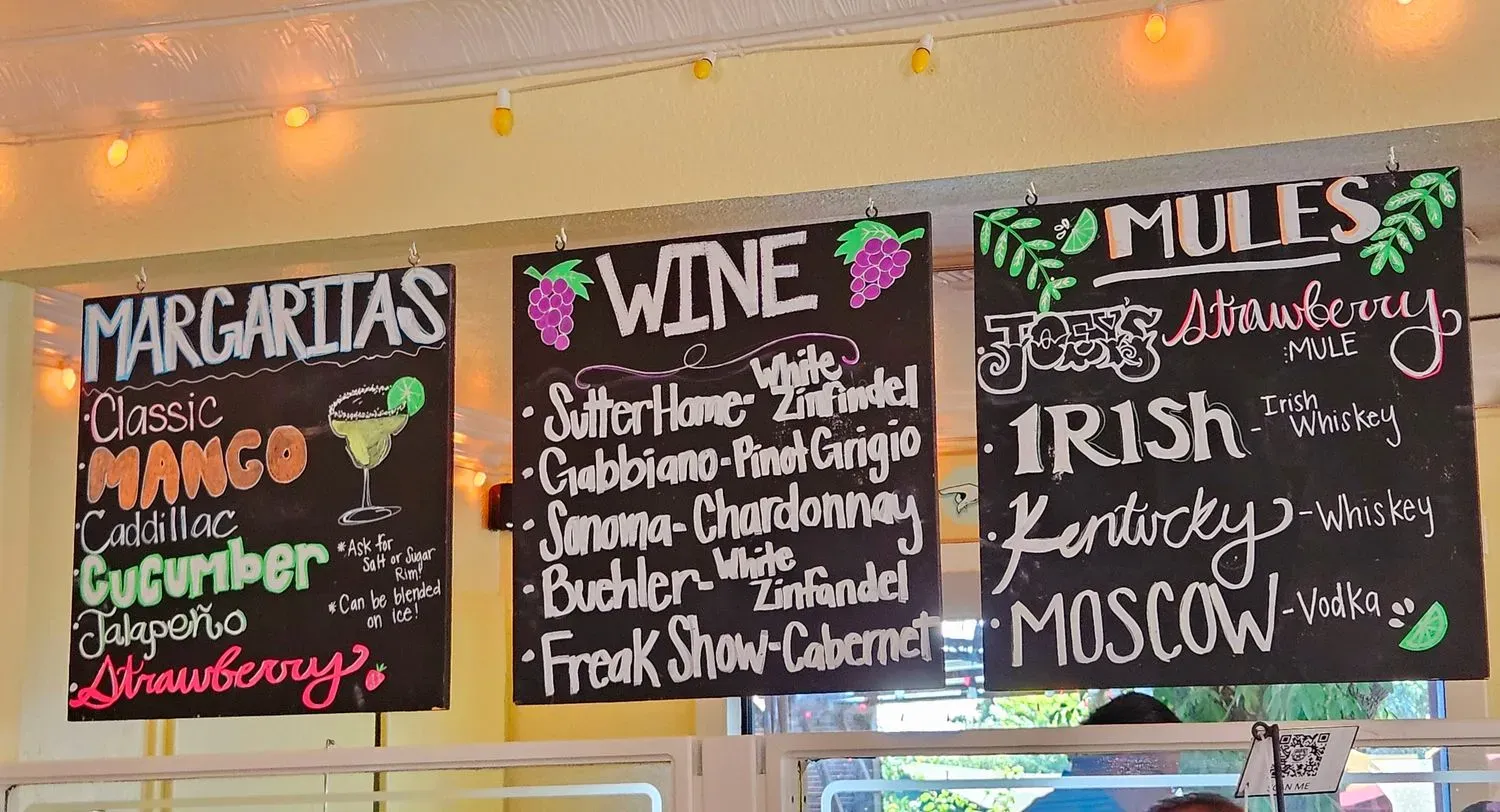 MARGARITAS
• Classic
• MANGO
• Caddillac
• Cucumber
• Jalapeño
• Strawberry
*Ask for
Salt or Sugar
Rim!
*Can be blended
on ice!
WINE
• Sutter Home - White Zinfindel
• Gabbiano - Pinot Grigio
• Sonoma - Chardonnay
• Buehler - White Zinfandel
• Freak Show - Cabernet
MULES
• JOEY'S Strawberry
:MULE
• IRISH - Irish Whiskey
• Kentucky - Whiskey
• MOSCOW - Vodka
SCAN ME